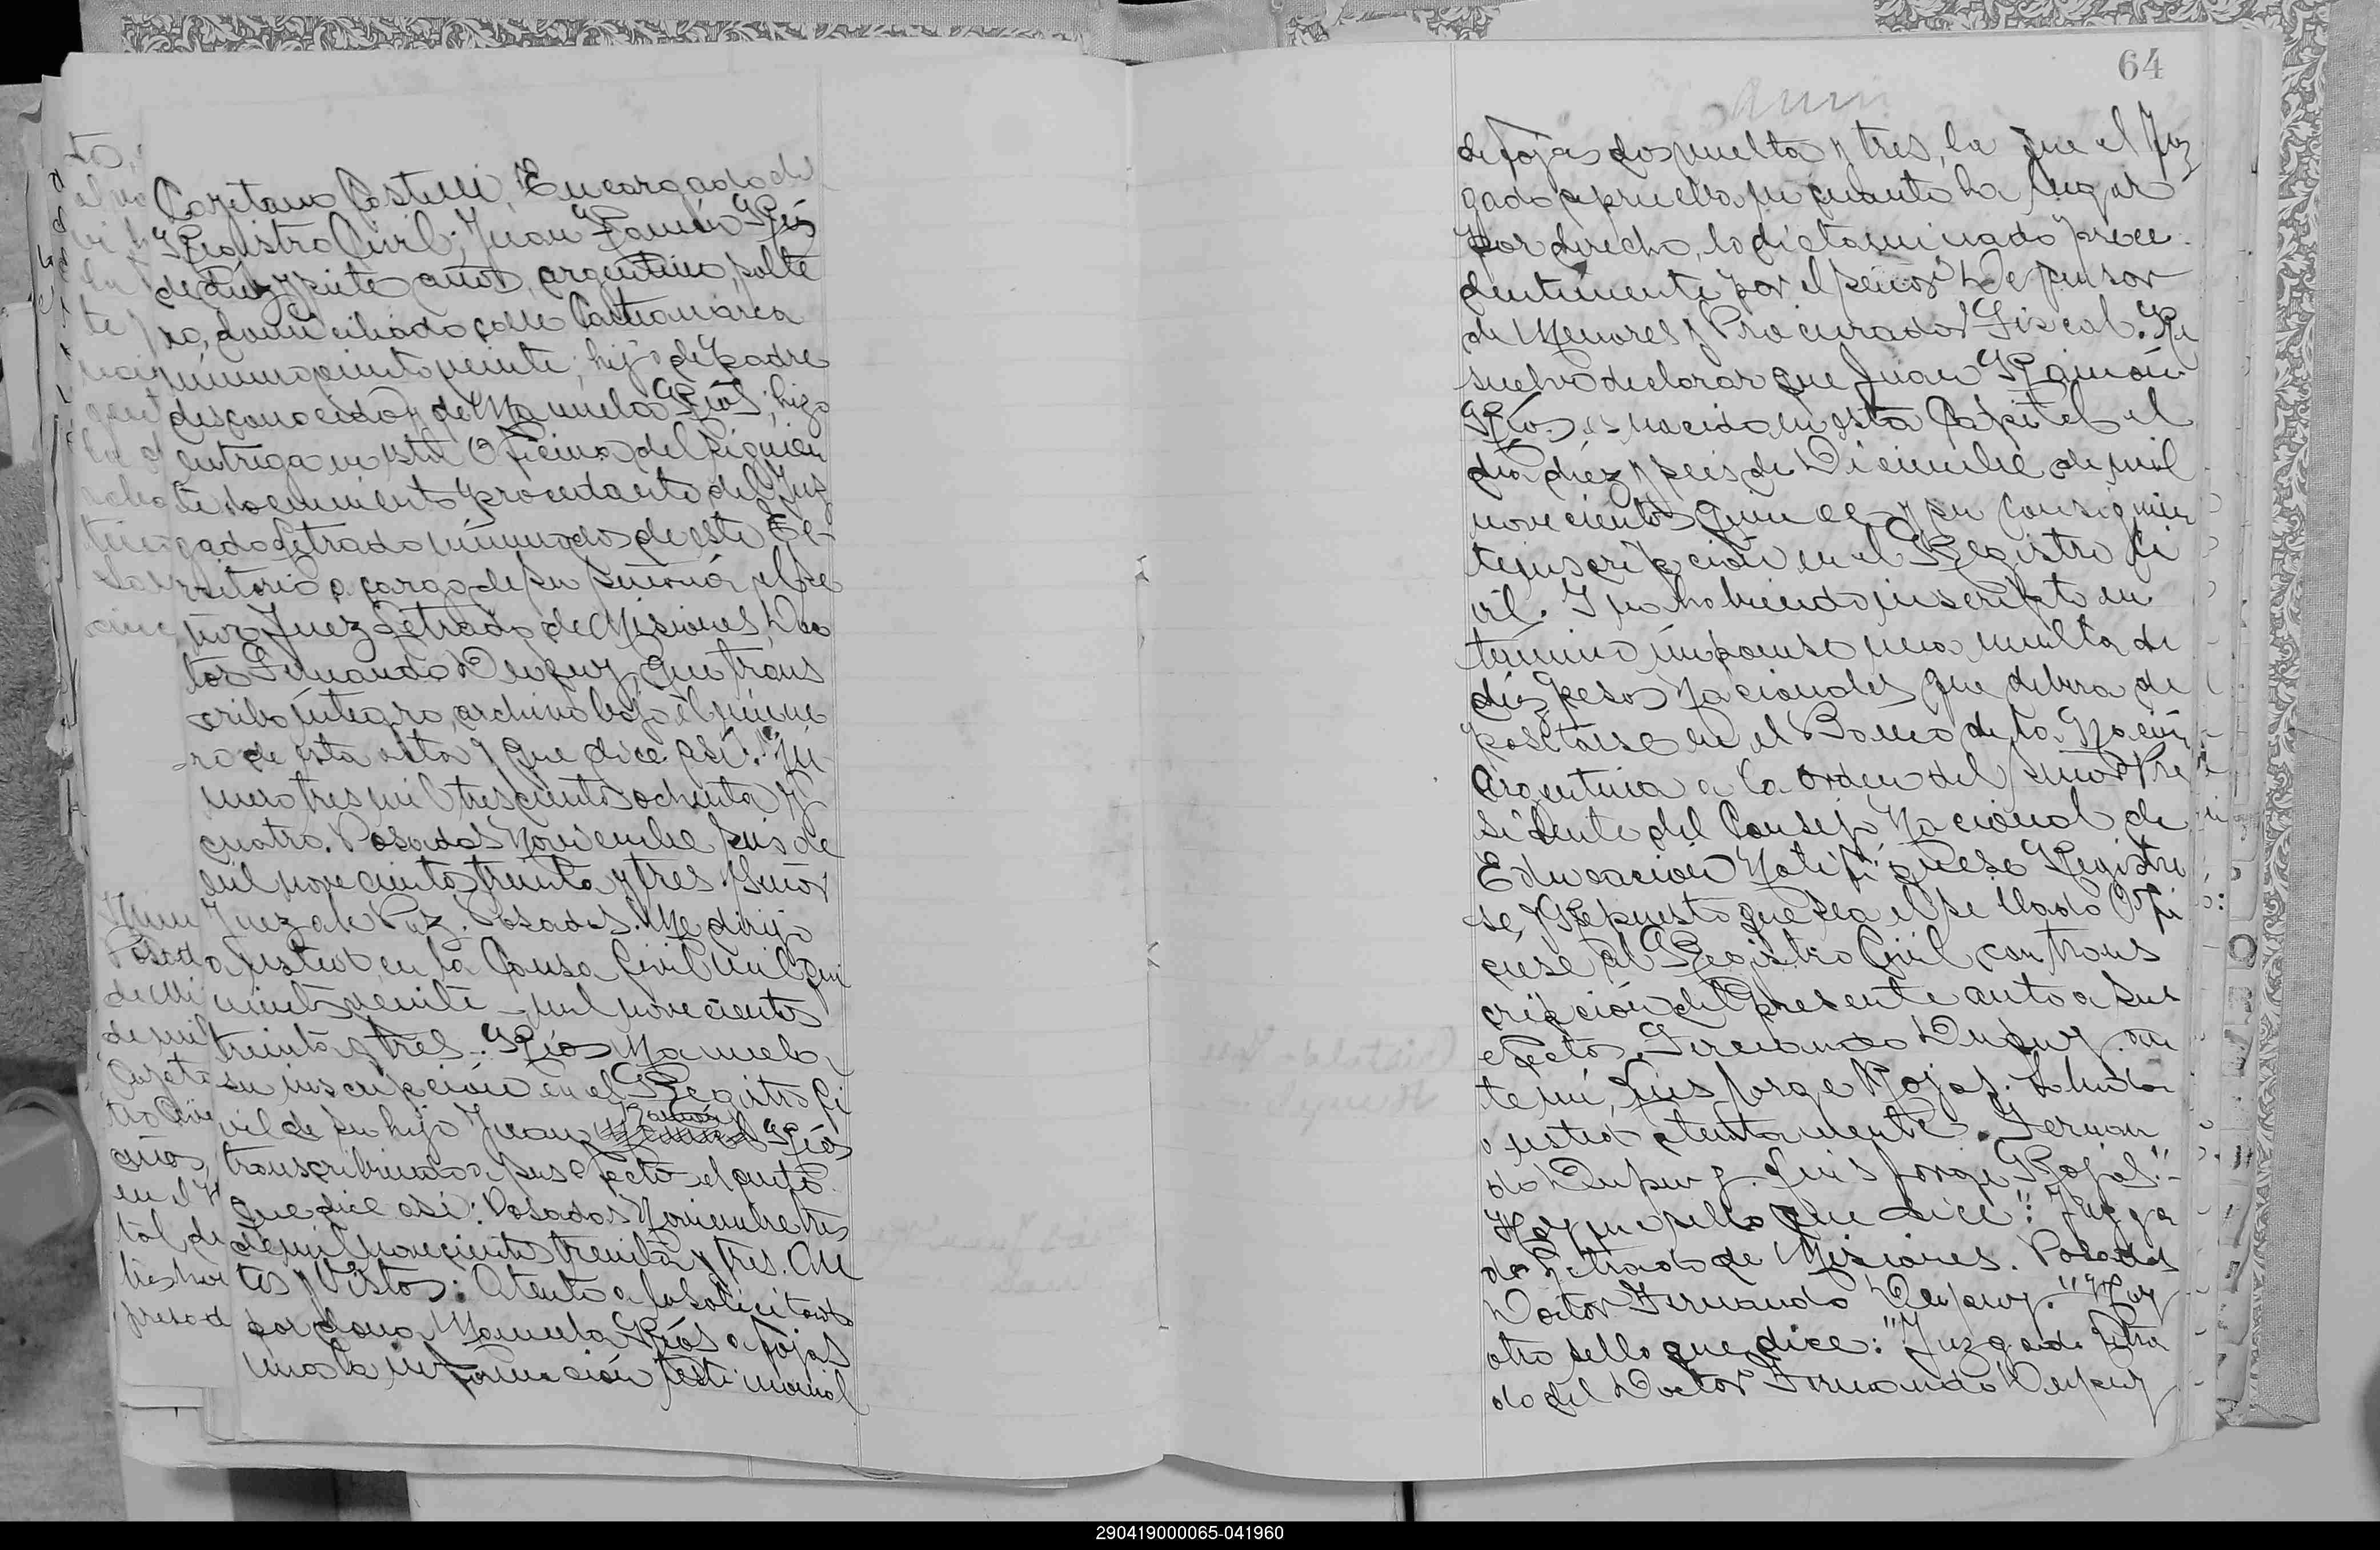 Cayetano Castelli, Encargado del
Registro Civil; Juan Ramón Ríos
de diez y siete años, argentino, solte
ro, domiciliado calle Catamarca
número ciento veinte, hijo de padre
desconocido y de Manuela Ríos; hizo
entrega en esta Oficina del siguien
te documento procedente del Juz
gado Letrado número dos de este Te-
rritorio a cargo de su señoría el se
ñor Juez Letrado de Misiones, Doc
tor Fernando Dupuy, que trans
cribo íntegro, archivo bajo el núme
ro de esta acta y que dice así: "Nú
mero tres mil trescientos ochenta y
cuatro. Posadas Noviembre seis de
mil novecientos treinta y tres. Señor
Juez de Paz. Posadas. Me dirijo
a usted, en la Causa Civil mil qui
nientos veinte – mil novecientos
treinta y tres –. Ríos Manuela
su inscripción en el Registro Ci
vil de su hijo Juan Ramón Ríos
transcribiendo a sus efectos el auto
que dice así: Posadas Noviembre tres
de mil novecientos treinta y tres. Au
tos y Vistos: Atento a lo solicitado
por doña Manuela Ríos a fojas
una la información testimonial
64
de fojas dos vuelta y tres, la que el Juz
gado aprueba en cuanto ha lugar
por derecho, lo dictaminado prece
dentemente por el señor Defensor
de Menores y Procurador Fiscal. Re
suelvo declarar que Juan Ramón
Ríos es nacido en esta Capital el
día diez y seis de Diciembre de mil
novecientos quince y su consiguien
te inscripción en el Registro Ci
vil. Y no habiendo inscripto en
término impónese una multa de
diez pesos nacionales que deberá de
positarse en el Banco de la Nación
Argentina a la orden del señor Pre
sidente del Consejo Nacional de
Educación Notifíquese Regístre
se, y Repuesto que sea el sellado Ofí
ciese al Registro Civil con trans
cripción del presente auto a sus
efectos. Fernando Dupuy. an
te mí, Luis Jorge Rojas. Saluda
a usted atentamente. Fernan
do Dupuy. Luis Jorge Rojas".–
Hay un sello que dice: "Juzga
do Letrado de Misiones. Posadas
Doctor Fernando Dupuy." Hay
otro sello que dice: "Juzgado Letra
do del Doctor Fernando Dupuy
290419000065-041960